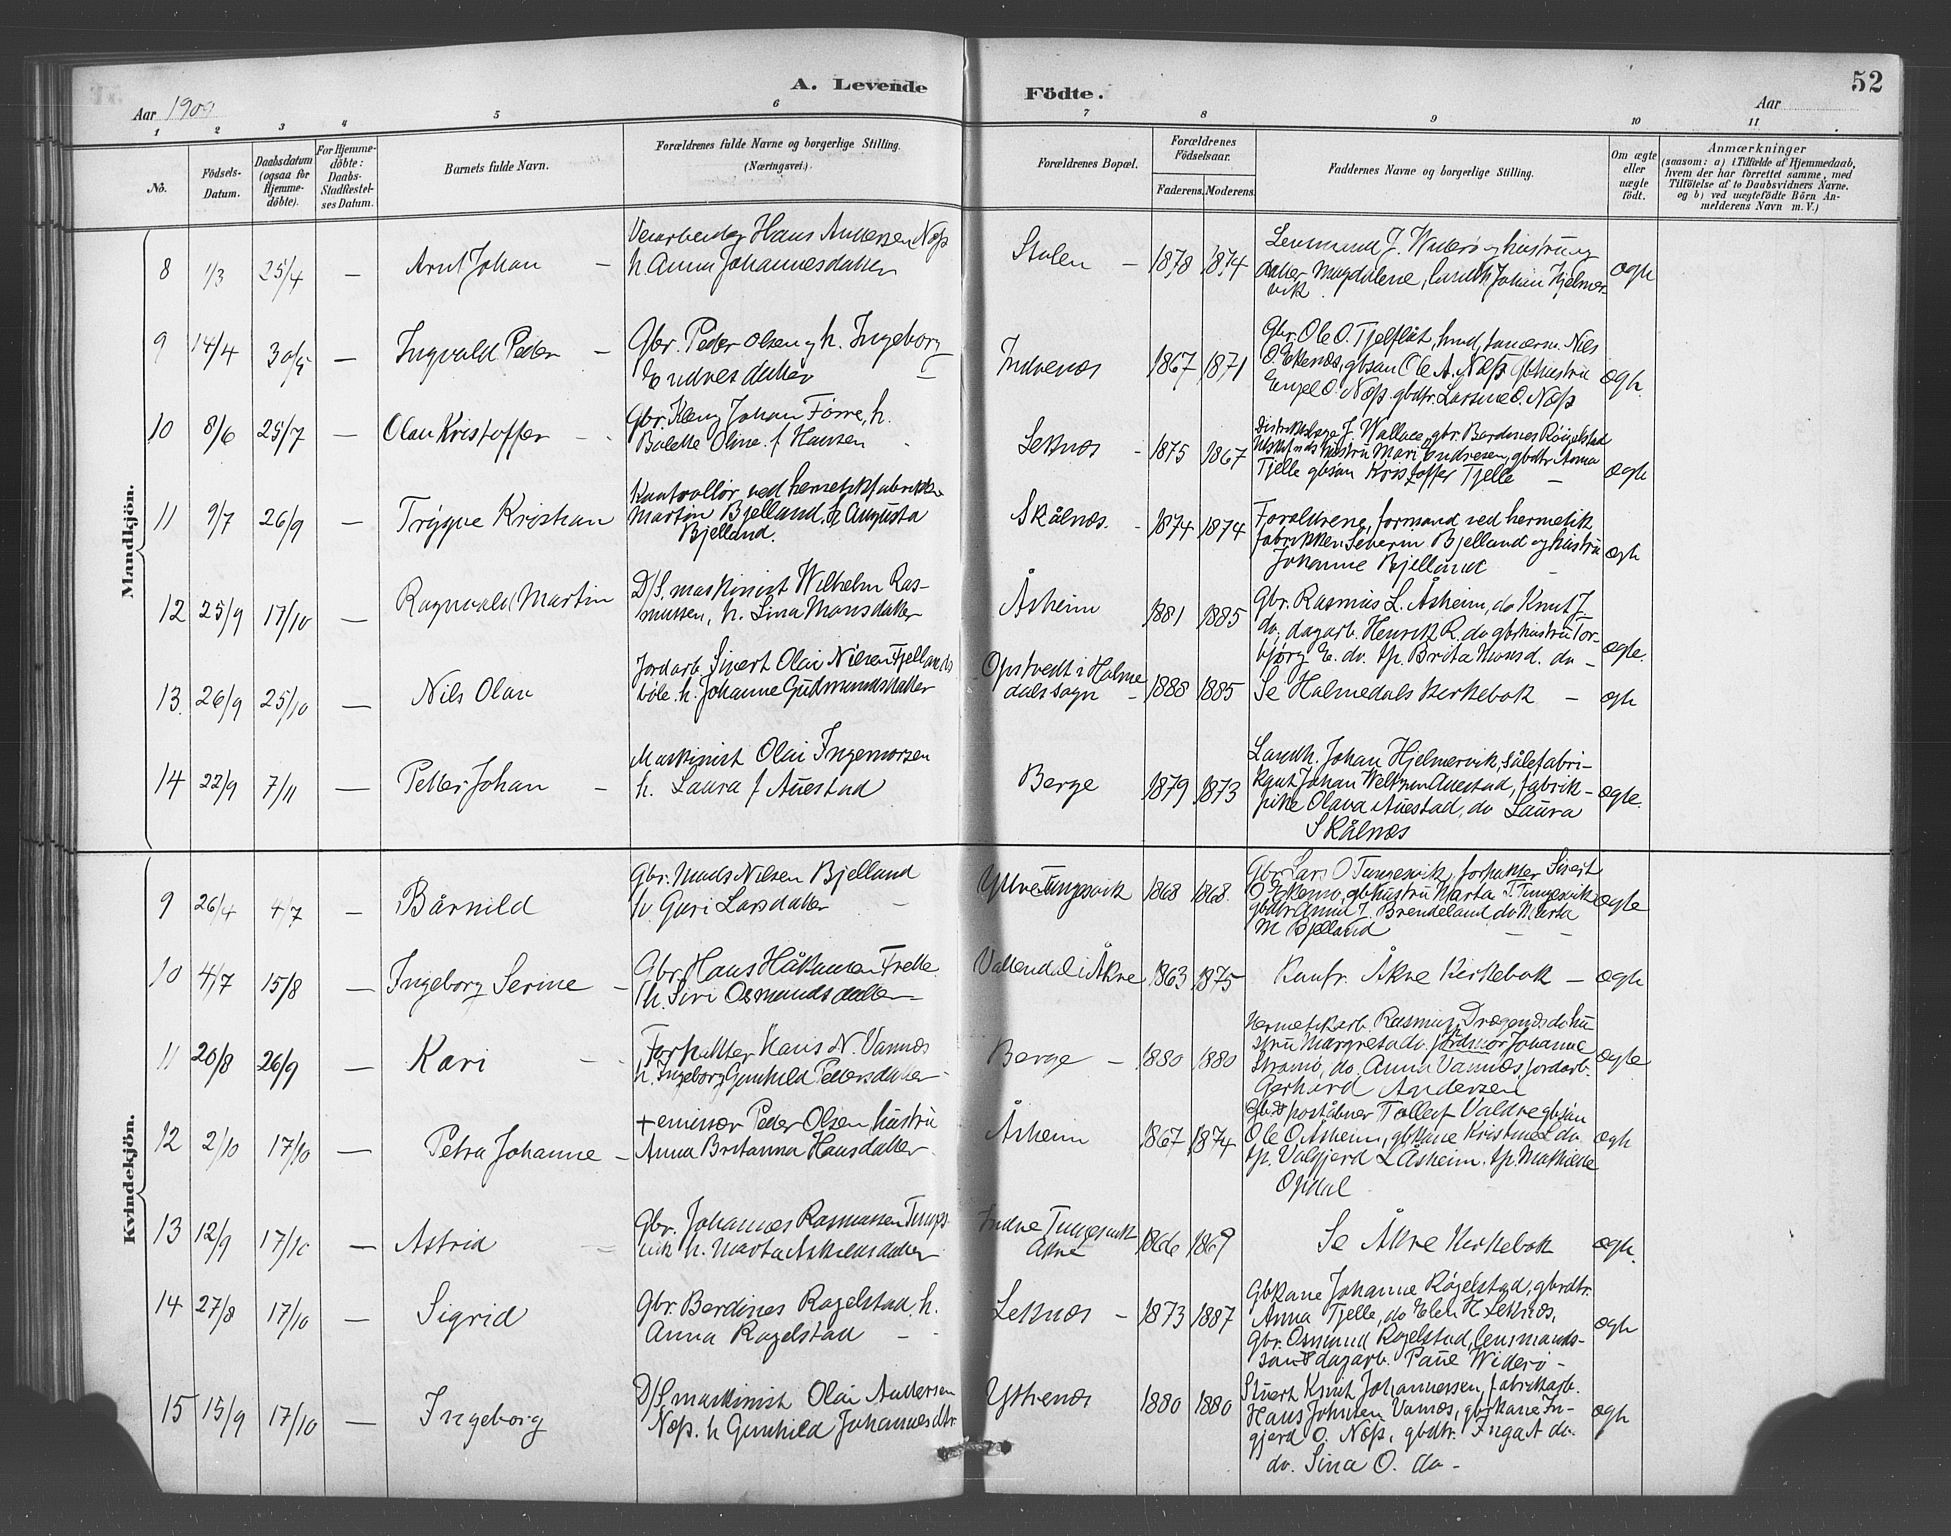 A. Levende Födte.
52
Aar 1909
Aar
1 2 3 4 5 6 7 8 9 10 11
No.
Födsels-Datum.
Daabsdatum (ogsaa for Hjemme-döbte).
For Hjemme-döbte: Daabs-Stadfæstel-ses Datum.
Barnets fulde Navn.
Forældrenes fulde Navne og borgerlige Stilling. (Næringsvei.)
Forældrenes Bopæl.
Forældrenes Födselsaar.
Faderens. Moderens.
Faddernes Navne og borgerlige Stilling.
Om ægte eller uægte födt.
Anmærkninger
(saasom: a) i Tilfælde af Hjemmedaab,
hvem der har forrettet samme, med
Tilföielse af to Daabsvidners Navne.
og b) ved uægtefödte Börn An-
melderens Navn m. V.)
Mandkjön.
8 1/3 25/4 — Arnt Johan — Hans Andersen Næss
h. Anna Johannesdatter
Stolen — 1878 1874
J. Widerö og hustru og
datter Magdalene, landh. Johan Hjelmer-
vik
ægte
9 14/4 30/5 — Ingvald Peder — Gbr. Peder Olsen og h. Ingeborg
Endresdatter —
Indrenæs 1867 1871
Gbr. Ole O. Tjelflåt, Nils
O. Ekenæs, gbsøn Ole A. Næss, gbhustru
Engel O. Næss, gbdtr. Larsine O. Næss
ægte
10 8/6 25/7 — Olav Kristoffer - Gbr. Johan Førre, h.
Oline f. Hansen
Leknæs - 1875 1867
Distriktslæge J. Wallace, gbr. Berdines Røgelstad
hustru Mari Endresen, gbdtr. Anna
Tjelle gbsøn Kristoffer Tjelle —
ægte
11 9/7 26/9 — Trygve Kristian Kontrollør ved hermetikfabrikken
Martin Bjelland, h. Augusta
Bjelland.
Skålnæs. - 1874 1874
Forældrene, formand ved hermetik
fabrikken Severin Bjelland og hustru
Johanne Bjelland —
ægte
12 25/9 17/10 — Ragnvald Martin D/S. maskinist Wilhelm Ras-
mussen, h. Lina Monsdatter
Åsheim 1881 1885
Gbr. Rasmus L. Åsheim, do Knut J.
do, dagarb. Henrik R. do gbhustru Tor-
bjørg E. do. tp. Brita Monsd. do —
ægte.
13. 26/9 25/10 — Nils Olav Jordarb. Sivert Olai Nilsen Fjellands
bøle. h. Johanne Gudmundsdatter
Opstvedt i Holme
dals sogn - 1888 1885
Se Holmedals kirkebok —
ægte
14 22/9 7/11 — Petter Johan — Maskinist Olai Ingemorsen
h. Laura f. Auestad
Berge 1879 1873
Landh. Johan Hjelmervik, sålefabri-
kant Johan Auestad, fabrik-
pike Olava Auestad, do Laura
Skålnæs
ægte.
Kvindekjön.
9 26/4 4/7 — Bårnild Gbr. Mads Nilsen Bjelland
h. Guri Larsdatter —
Ytre Tungesvik 1868 1868.
Gbr. Lars O Tungesvik, forpakter Sivert
O. Ekemo, gbhustru Marta T. Tungesvik
gbdtr. Anna J. Brendeland do Marta
M Bjelland — —
ægte
10 4/7 15/8 — Ingeborg Serine — Gbr. Hans Håkansen Frette
h. Siri Osmundsdatter —
Vallendal i Åkre 1863 1875
Konfr. Åkre Kirkebok —
ægte
11 20/8 26/9 — Kari - - Forpakter Hans N. Vannæs
h. Ingeborg Gunhild Pettersdatter -
Berge — 1880 1880
Hermetikarb. Rasmus Drægendsdo hu-
stru Margreta do. jordmor Johanne
Stramö, do. Anna Vannæs, jordarb.
Gerhard Andersen
ægte
12 2/10 17/10 — Petra Johanne — + emissær Peder Olsen, hustru
Anna Britanna Hansdatter -
Åsheim 1867 1874
poståbner Tollef Valdre gbsøn
Ole O. Åsheim, gbkone Kristine L do.
tp. Valgjerd L Åsheim, tp. Mathilde
Opdal -
ægte
13 12/9 17/10 — Astrid — Gbr. Johannes Rasmussen Tunges-
vik h. Marta Askildsdatter
Indre Tungesvik
Åkre 1866 1869
Se Åkre Kirkebok
ægte.
14 27/8 17/10 — Sigrid Gbr. Berdines Røgelstad, h.
Anna Røgelstad - -
Leknæs — 1873 1887
Gbkone Johanne Røgelstad, gbrdtr.
Anna Tjelle, do Elen H. Leknæs,
Gbr. Osmund Røgelstad, lensmands-
søn & dagarb. Paul Widerö -
ægte
15 15/9 17/10 — Ingeborg D/S. maskinist Olai Andersen
Næss. h Gunhild Johannesdtr.
Ytrenæs 1880 1880
Stuert Knut Johannessen, fabrikarb.
Hans Johnsen Vannæs, gbrkone In-
gjerd O. Næss, gbdtr. Inga A do.
do. Sina O. do -
ægte